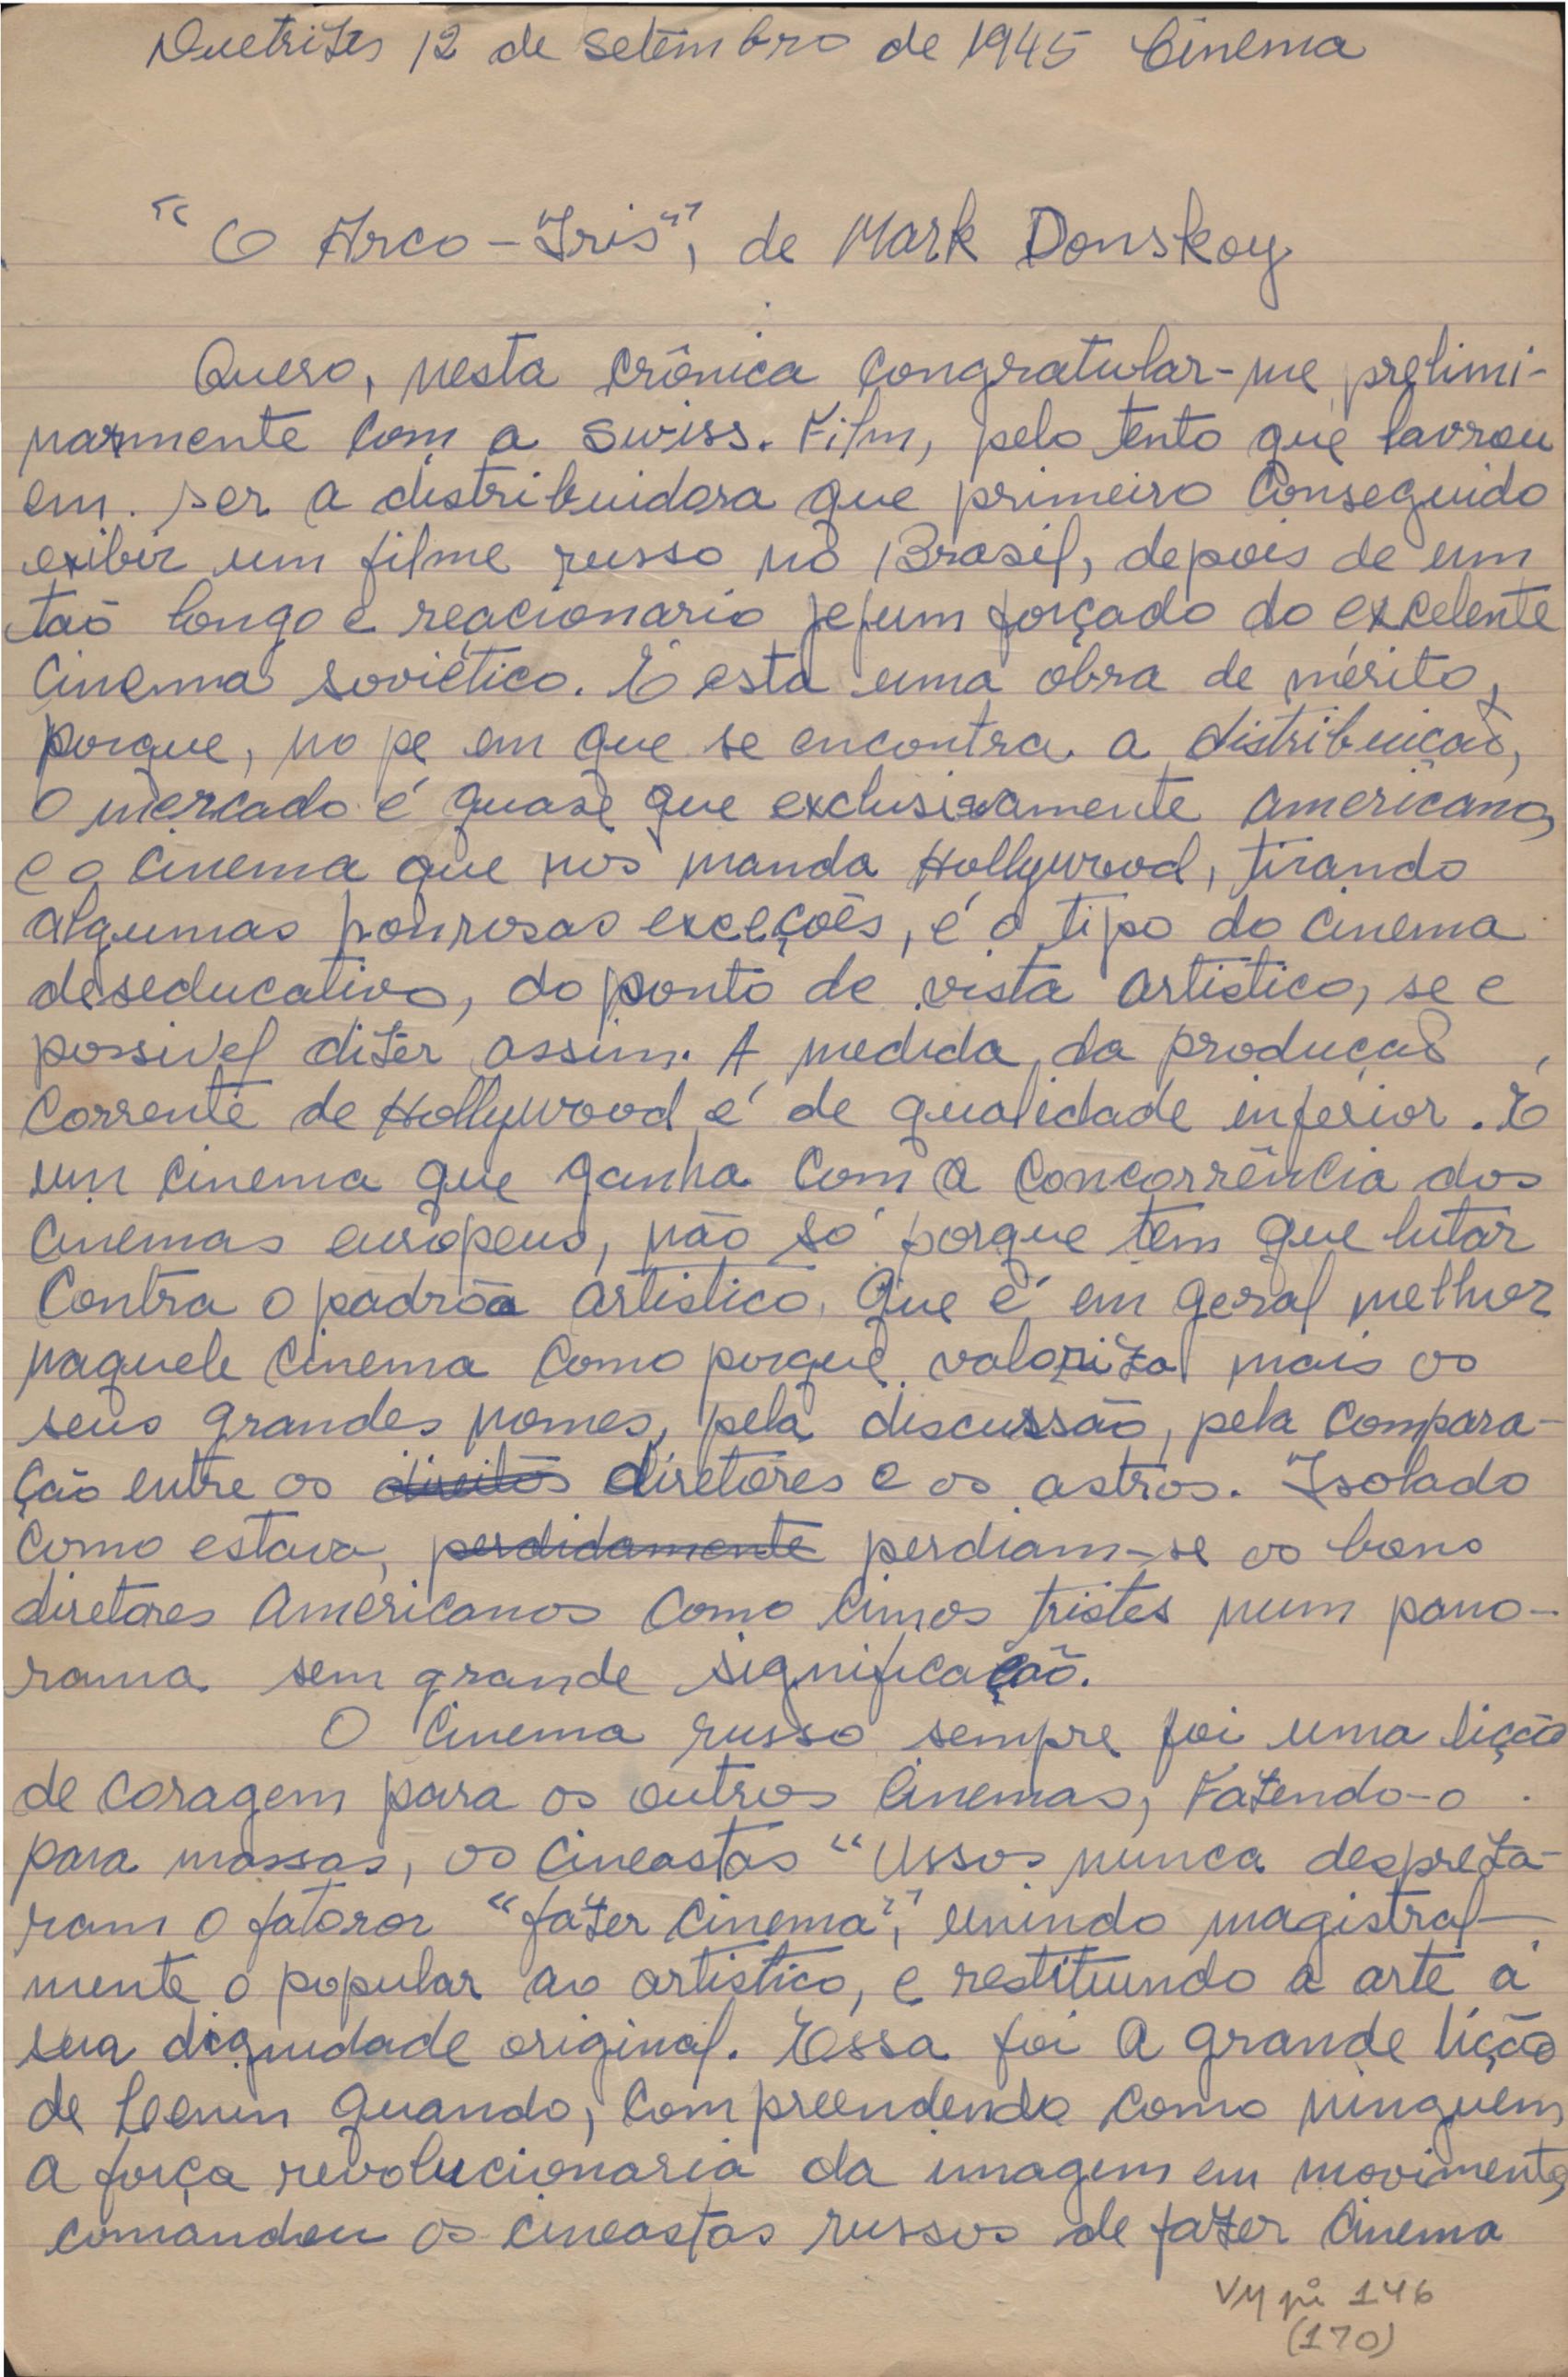 Diretrizes 12 de setembro de 1945 Cinema
"O Arco-Iris", de Mark Donskoy
Quero, nesta crônica congratular-me prelimi-
narmente com a Swiss. Film, pelo tento que lavrou
em. ser a distribuidora que primeiro conseguido
exibir um filme russo no Brasil, depois de um
taõ longo e reacionario jejum forçado do excelente
cinema soviético. E esta uma obra de mérito,
porque, no pe em que se encontra a distribuiçaõ,
o mercado é quase que exclusivamente americano,
e o cinema que nos manda Hollywood, tirando
algumas honrosas exceções, é o tipo do cinema
deseducativo, do ponto de vista artistico, se e
possivel dizer assim. A medida da produçaõ,
corrente de Hollywood é de qualidade inferior. E
um cinema que ganha com a concorrência dos
cinemas europeus, não só porque tem que lutar
contra o padrão artistico. que é em geral melhor
naquele cinema como porque valoriza mais os
seus grandes nomes, pela discussão, pela compara-
ção entre os direitos diretores e os astros. Isolado
como estava, perdidamente perdiam-se os bons
diretores americanos como cimos tristes num pano-
rama sem grande significaçaõ.
O cinema russo sempre foi uma lição
de coragem para os outros cinemas, Fazendo-o.
para massas, os cineastas "ussos nunca despreza-
ram o fatoror "fazer cinema", unindo magistral-
mente o popular ao artistico, e restituindo a arte á
sua dignidade original. Essa foi a grande lição
de Leenin quando, compreendendo como ninguem
a força revolucionaria da imagem em movimento,
comandou os cineastas russos de fazer cinema
VM pi 146
(170)